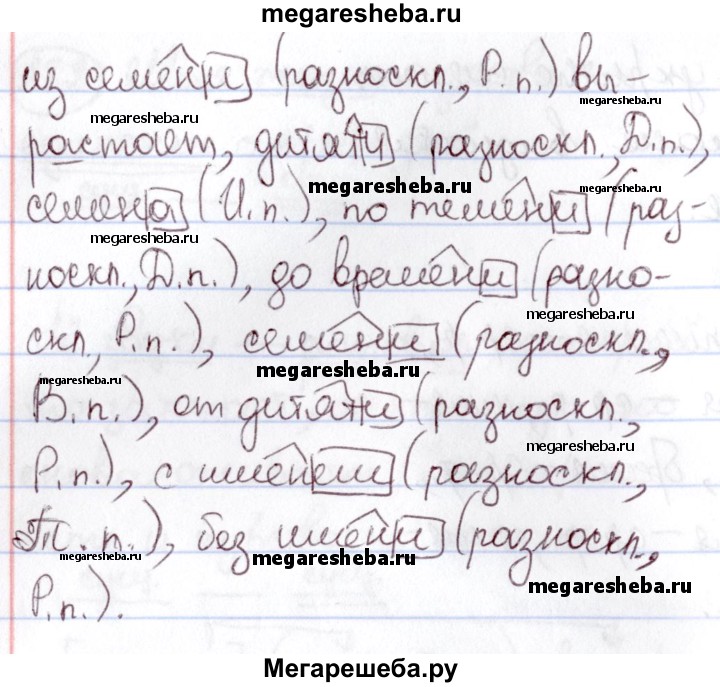 megaresheba.ru
из семени (разноскл., Р.п.) вы-
megaresheba.ru
megaresheba.ru
растает, дитяти (разноскл., Д.п.),
megaresheba.ru
megaresheba.ru
семена (И.п.), по темени (раз-
megaresheba.ru
носкл., Д.п.), до времени (разно-
megaresheba.ru
скл., Р.п.), семени (разноскл.,
megaresheba.ru
megaresheba.ru
В.п.), от дитяти (разноскл.,
megaresheba.ru
Р.п.), с именем (разноскл.,
Т.п.), без имени (разноскл.,
megaresheba.ru
megaresheba.ru
megaresheba.ru
Р.п.).
Мегарешеба.ру